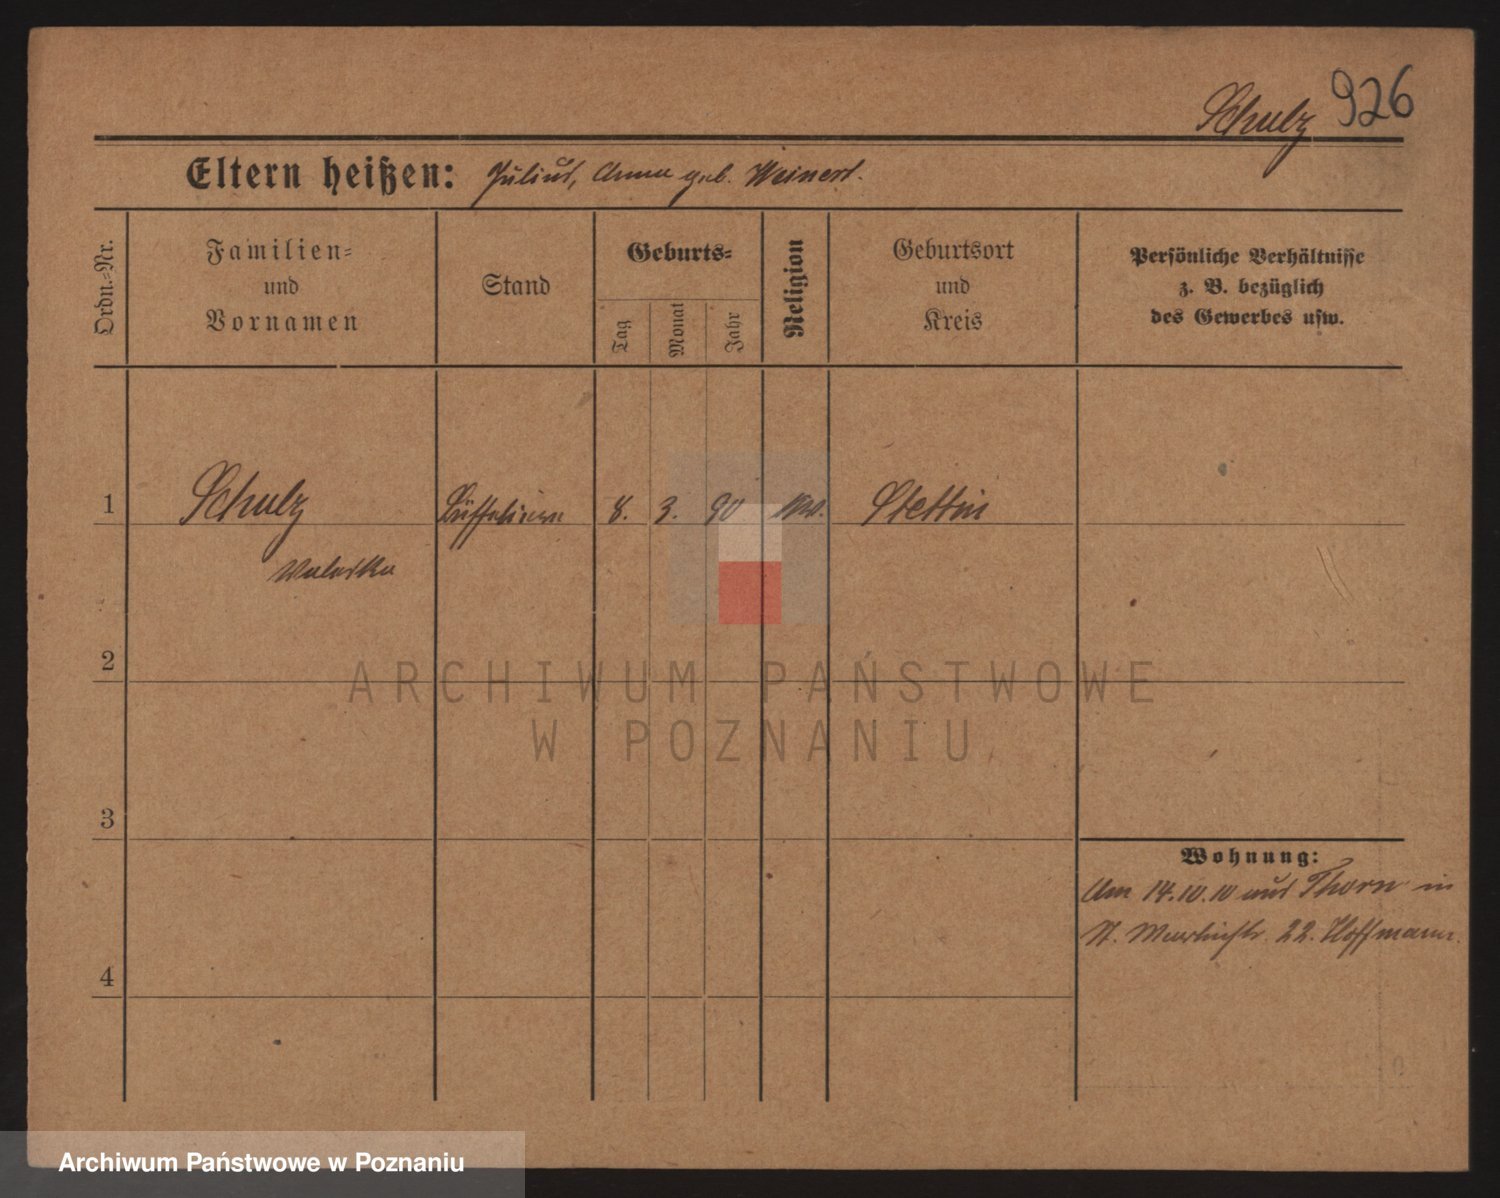 Schulz 926
Eltern heißen: Julius, Anna geb. Weinert.
Ordn.-Nr.
Familien-
und
Vornamen
Stand
Geburts-
Tag
Monat
Jahr
Religion
Geburtsort
und
Kreis
Persönliche Verhältnisse
z. B. bezüglich
des Gewerbes usw.
1 Schulz 8. 3. 90 Stettin
Waleska
2
ARCHIWUM PAŃSTWOWE
W POZNANIU
3
Wohnung:
Am 14.10.10 aus Thorn in
St. Martinstr. 22. Hoffmann.
4
Archiwum Państwowe w Poznaniu